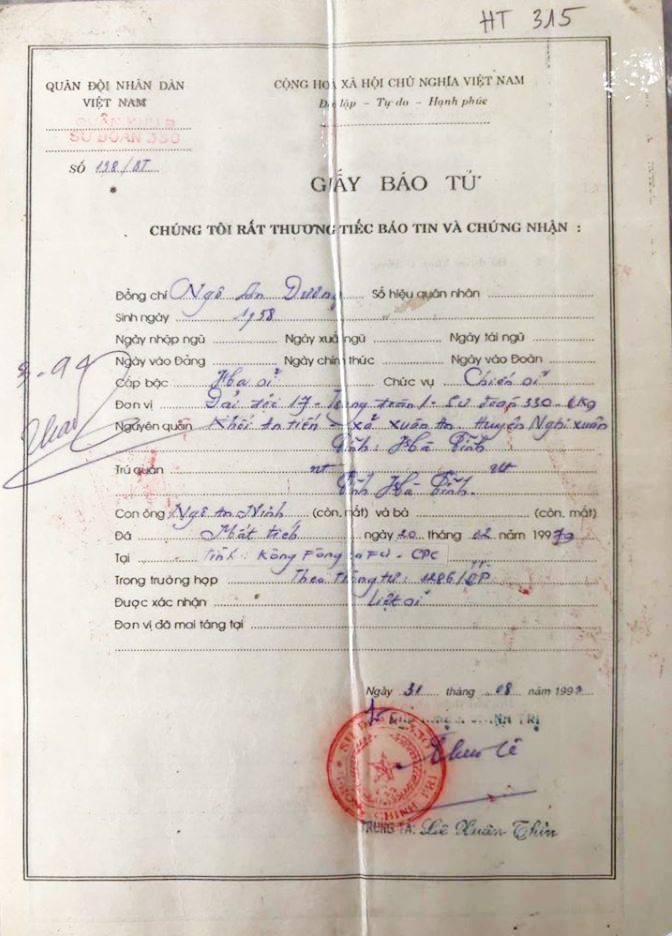 HT 315
QUÂN ĐỘI NHÂN DÂN
VIỆT NAM
CỘNG HOÀ XÃ HỘI CHỦ NGHĨA VIỆT NAM
Độc lập - Tự do - Hạnh phúc
SỐ 198/BT
GIẤY BÁO TỬ
CHÚNG TÔI RẤT THƯƠNG TIẾC BÁO TIN VÀ CHỨNG NHẬN :
Đồng chí Ngô Dương Số hiệu quân nhân
Sinh ngày 1958
Ngày nhập ngũ Ngày xuất ngũ Ngày tái ngũ
Ngày vào Đảng Ngày chính thức Ngày vào Đoàn
Cấp bậc Hạ sĩ Chức vụ Chiến sĩ
Đơn vị Đại đội 17 - Trung đoàn 1 - Sư đoàn 330 - QK9
Nguyên quán Khối An tiến - xã Xuân An - Huyện Nghi Xuân
Tỉnh: Hà Tĩnh
Trú quán nt nt
Tỉnh Hà Tĩnh.
Con ông Ngô An Ninh (còn, mất) và bà (còn, mất)
Đã Mất tích ngày 20 tháng 02 năm 1979
Tại Tỉnh: Kông Pông - CPC
Trong trường hợp Theo Thông tư: 1286/QP
Được xác nhận Liệt sĩ
Đơn vị đã mai táng tại
Ngày 31 tháng 08 năm 199
CHÍNH TRỊ
TRUNG TÁ: Lê Xuân Thìn